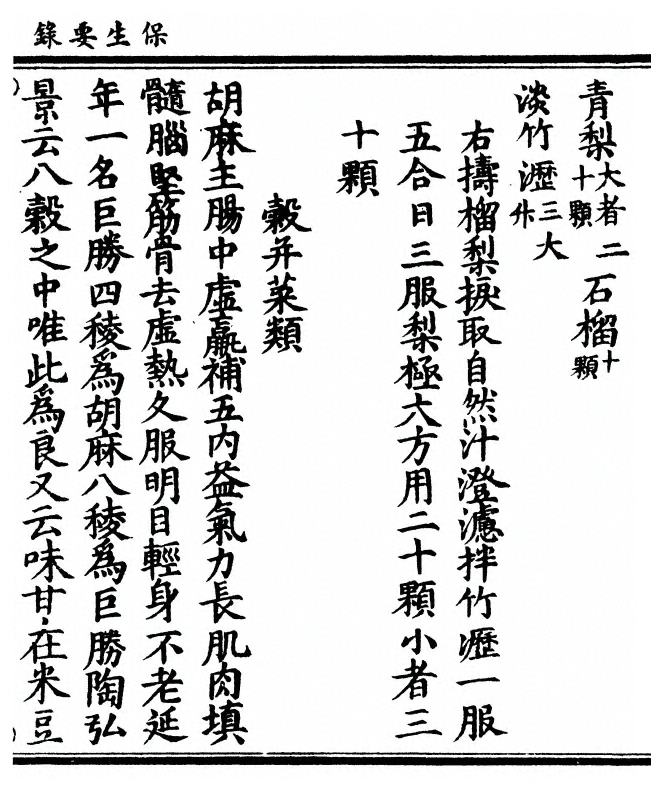 保生要錄
青梨大者二十顆 石榴十顆
淡竹瀝三大升
右擣榴梨捩取自然汁澄濾拌竹瀝一服
五合日三服梨極大方用二十顆小者三
十顆
穀并菜類
胡麻主腸中虛羸補五内益氣力長肌肉填
髓腦堅筋骨去虛熱久服明目輕身不老延
年一名巨勝四稜為胡麻八稜為巨勝陶弘
景云八穀之中唯此為良又云味甘在米豆